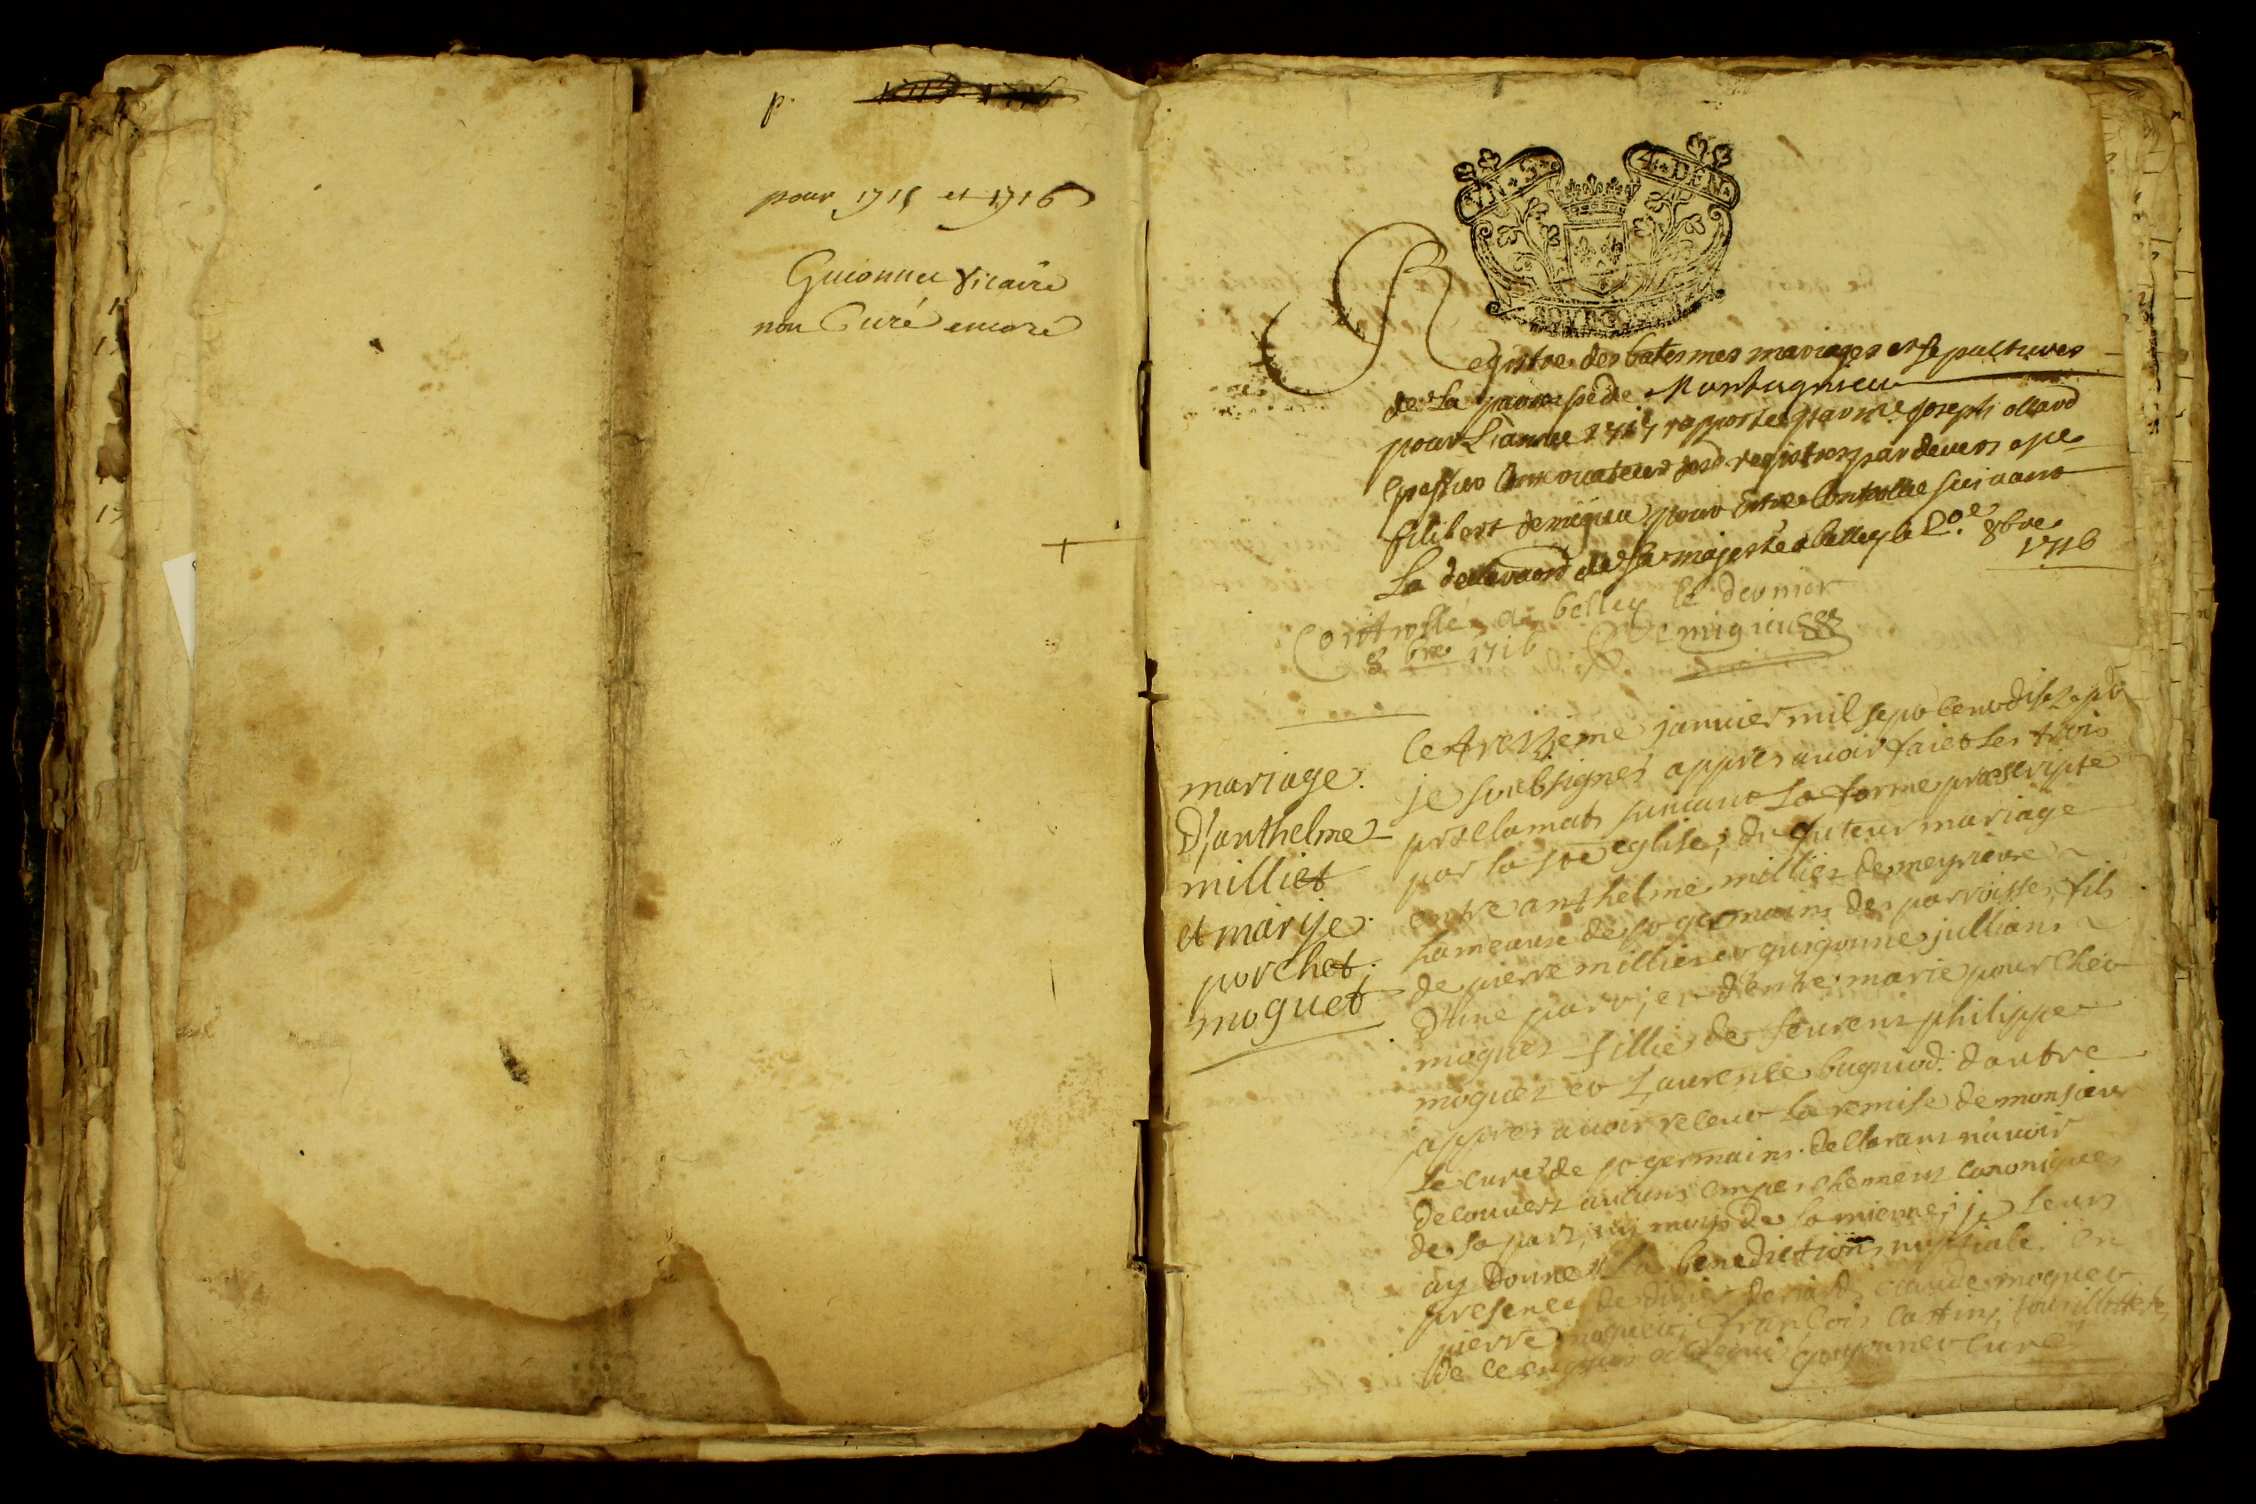 p.
pour 1715 et 1716
Guionnet vicaire
non Curé encore
4 · DEN ·
Registre des batesmes mariages et sepultures
de la paroisse de Montagnieu
pour Lannee 1717 rapporté par me Joseph
greffier Conservateur desd registres pardevers
filibert demigieu pour estre Controllé suivant
La de sa majesté a belley le Der 8bre
1716
Controllé a belley le dernier
8bre 1716 Demigieu
mariage
D'anthelme
milliet
et marije
porchet
moguet
le treizjeme janvier mil sept cent dise sept
je soubsigné appres avoir faict les trois
proclamats suivant la forme prescripte
par la ste eglise, du futeur mariage
entre anthelme milliet de meyrieu
hameau de st germains des parroisses, fils
de pierre milliet et guigonne jullians
d'une part, et d'entre marie pourchet
moguet fillie de feurent philippe
moguet et Laurence bugniod d'autre
appres avoir receut la remise de monsieur
le curé de st germains declarant n'avoir
decouvert aucuns empeschement canoniques
de sa part, ny moy de la mienne, je leurs
ay donné la benediction nuptiale en
presence de didier claude moguet
pierre moguet, françois cottin, tous illitterés
de ce enquis et requis Guyonnet curé